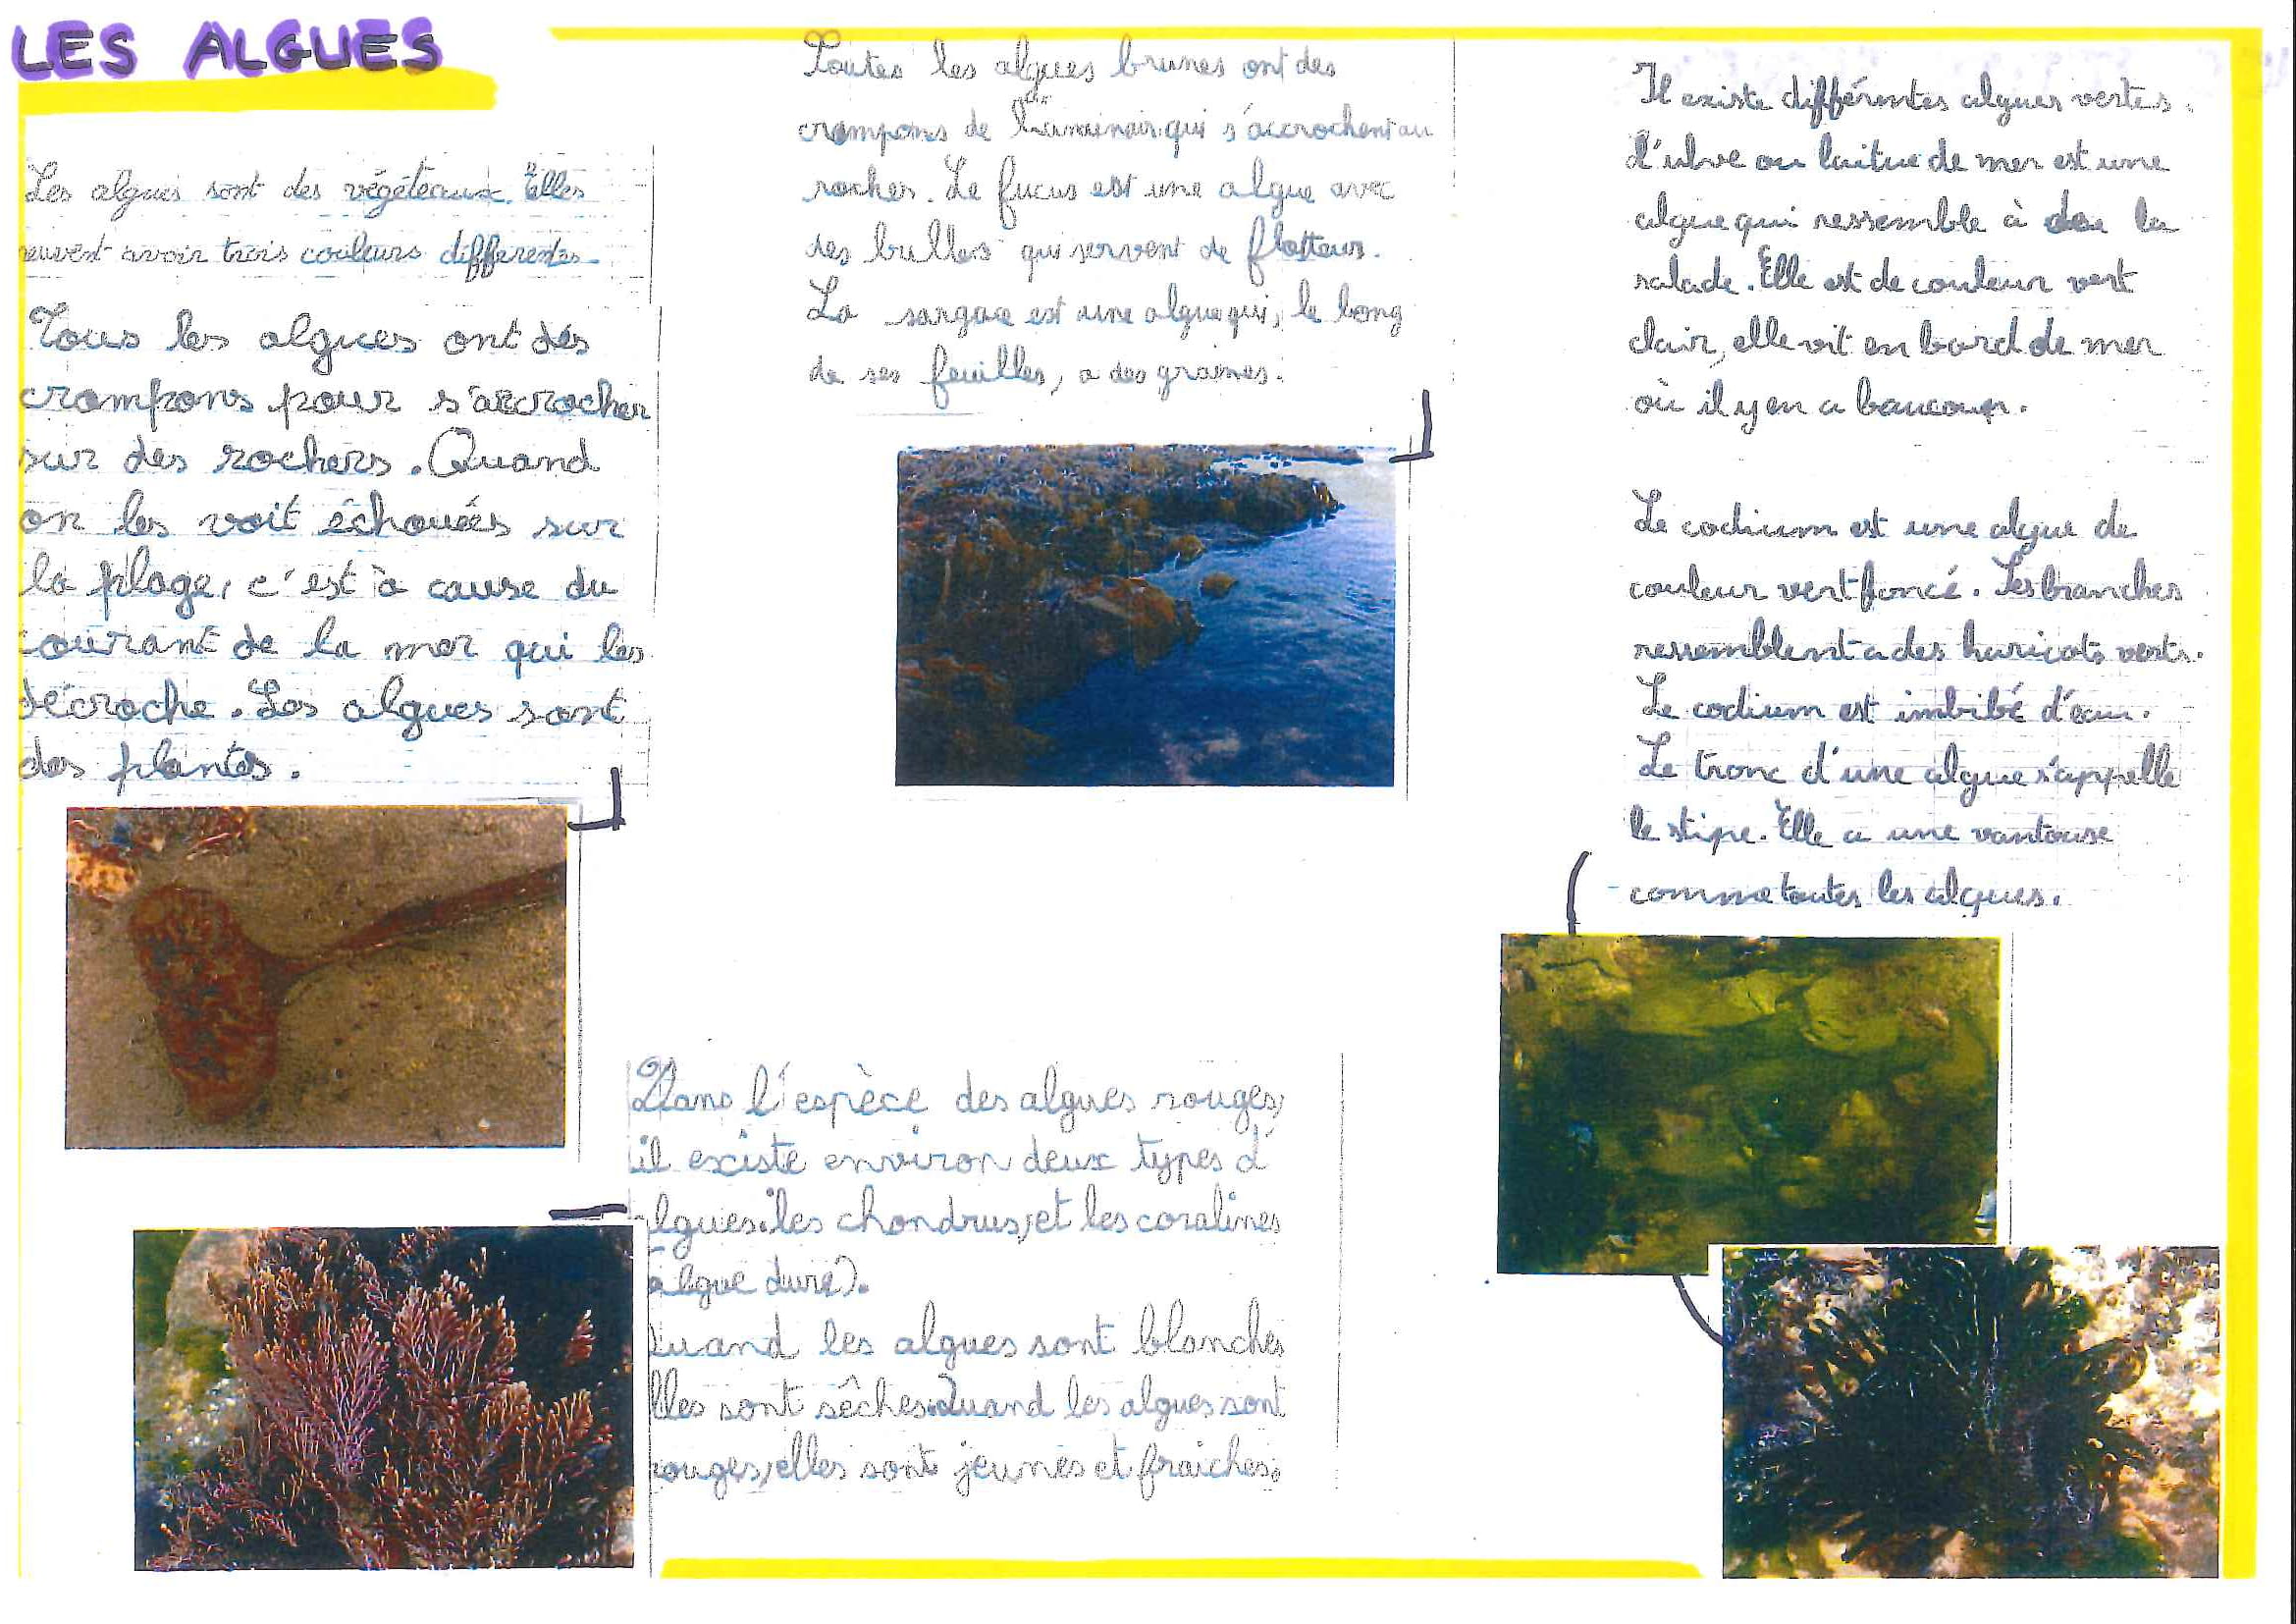 LES ALGUES
Les algues sont des végéteaux. Elles
peuvent avoir trois couleurs differentes
Tous les algues ont des
crampons pour s'accrocher
sur des rochers. Quand
on les voit échouées sur
la plage, c'est à cause du
courant de la mer qui les
décroche. Les algues sont
des plantes.
Toutes les algues brunes ont des
crampons de qui s'accrochent au
roches. Le fucus est une algue avec
des bulles qui servent de flotteurs.
La sargace est une algue qui, le long
de ses feuilles, a des graines.
Dans l'espèce des algues rouges,
il existe environ deux types d'
algues: les chondrus, et les coralines
algue dure).
Quand les algues sont blanches
elles sont sêches. Quand les algues sont
rouges, elles sont jeunes et fraiches.
Il existe différentes algues vertes.
L'ulve ou laitue de mer est une
algue qui ressemble à de la
salade. Elle est de couleur vert
clair, elle vit en bord de mer
où il y en a baucoup.
Le codium est une algue de
couleur vert foncé. Les branches
ressemblent a des haricots verts.
Le codium est imbibé d'eau.
Le tronc d'une algue s'appelle
le stipe. Elle a une vantouse
comme toutes les algues.